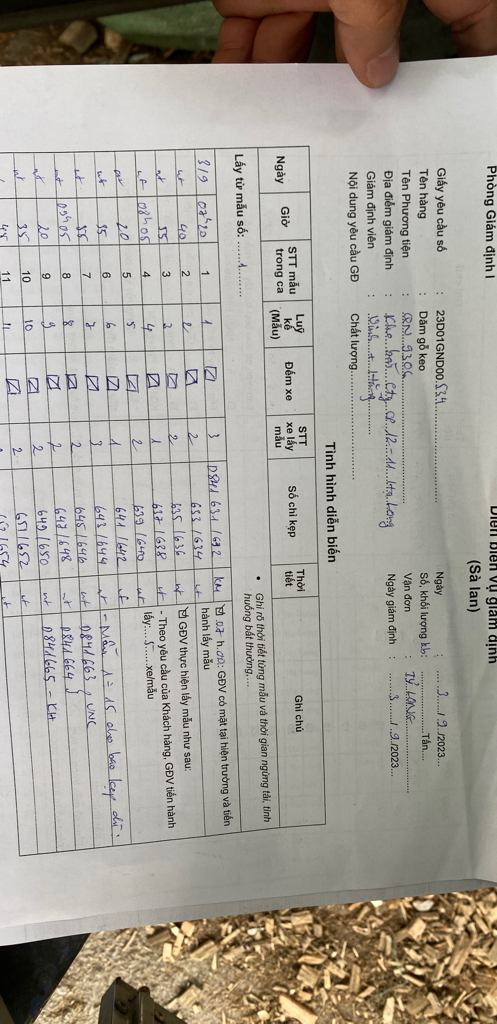 Phòng Giám định I
Diễn biến vụ giám định
(Sà lan)
Giấy yêu cầu số : 23D01GND00534
Ngày : 3/9/2023
Tên hàng : Dăm gỗ keo
Số, khối lượng Tấn
Tên Phương tiện : QN 9306
Vận đơn :
Địa điểm giám định : Kho bãi Cty CP 12-11 Hạ Long
Ngày giám định : 3/9/2023
Giám định viên :
Nội dung yêu cầu GĐ Chất lượng
Tình hình diễn biến
Ngày Giờ STT mẫu trong ca Luỹ kế (Mẫu) Đếm xe STT xe lấy mẫu Số chì kẹp Thời tiết Ghi chú
• Ghi rõ thời tiết từng mẫu và thời gian ngừng tải, tình huống bất thường....
Lấy từ mẫu số: 1
3/9 07h20 1 1 3 D841 631/632
07 h 00: GĐV có mặt tại hiện trường và tiến hành lấy mẫu
nt 40 2 2 2 633/634 nt
GĐV thực hiện lấy mẫu như sau:
nt 55 3 3 2 635/636 nt
- Theo yêu cầu của Khách hàng, GĐV tiến hành lấy: 5 xe/mẫu
nt 08h05 4 4 1 637/638 nt
nt 20 5 5 2 639/640 nt
nt 35 6 6 1 641/642 nt
nt 55 7 7 3 643/644 nt
nt 09h05 8 8 2 645/646 nt
D841663, VNC
nt 20 9 9 2 647/648 nt
D841664
nt 35 10 10 2 649/650 nt
D841665 - KH
45 11 11 2 651/652 nt